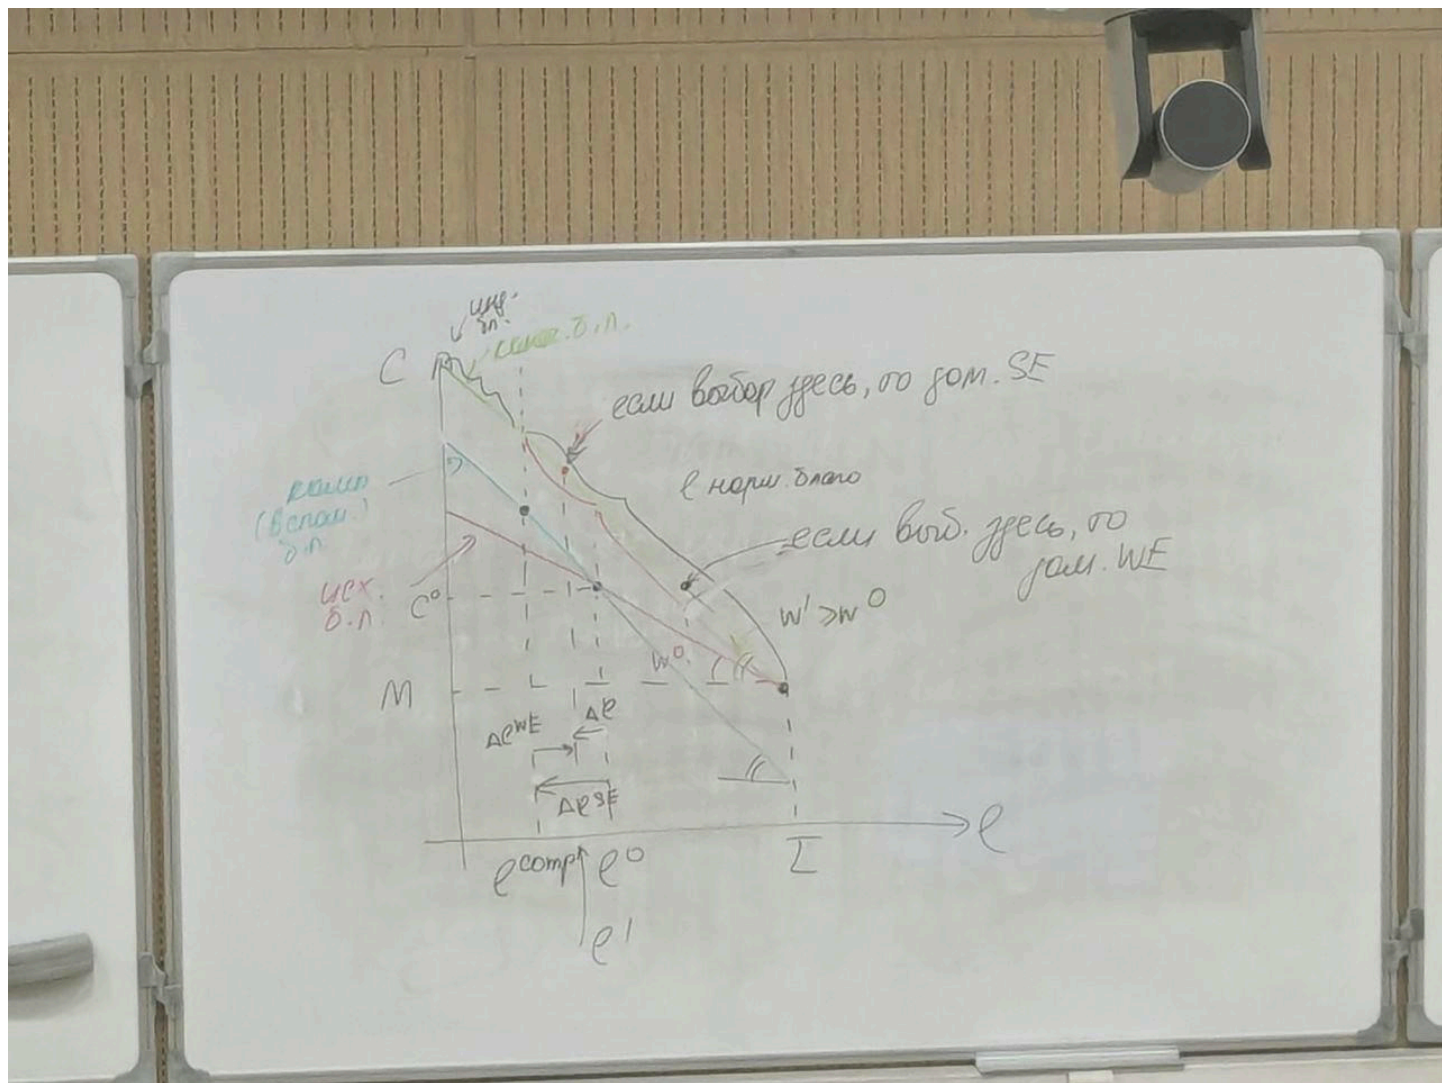 C
если выбор здесь, то дом. SE
l норм. благо
комп
(вспом.)
б.л
если выб. здесь, то
дом. WE
исх.
б.л.
C⁰
w' > w⁰
w⁰
M
Δl^WE
Δl
Δl^SE
l
l^comp
l⁰
l'